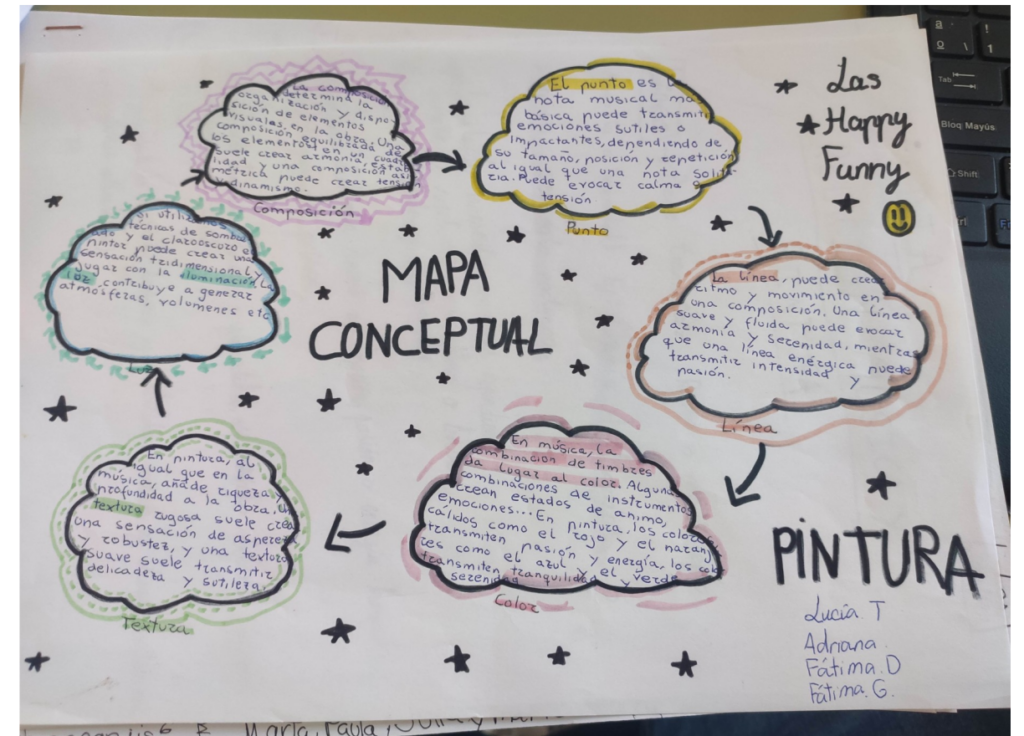 La composición
determina la
organización y dispo-
sición de elementos
visuales, en la obra. Una
composición equilibrada de
los elementos en un cuadro
suele crear armonía, estabi
lidad y una composición asi
métrica puede crear tensión
y dinamismo.
Composición
El punto es
nota musical más
básica puede transmiti
emociones sutiles o
impactantes, dependiendo de
su tamaño, posición y repetición
al igual que una nota solita-
ria. Puede evocar calma o
tensión
Punto
Las
Happy
Funny
Si utilizamos
técnicas de sombre
ado y el claroscuro el
pintor puede crear una
sensación tridimensional y
jugar con la iluminación. La
luz contribuye a generar
atmósferas, volumenes etc
Luz
MAPA
CONCEPTUAL
La línea, puede crear
ritmo y movimiento en
una composición. Una línea
suave y fluida puede evocar
armonía y serenidad, mientras
que una línea enérgica puede
transmitir intensidad y
pasión.
Línea
En pintura, al
igual que en la
música, añade riqueza y
profundidad a la obra. Un
textura rugosa suele crea
una sensación de aspere
y robustez, y una textura
suave suele transmitir
delicadeza y sutileza.
Textura
En música, la
combinación de timbres
da lugar al color. Alguna
combinaciones de instrumentos
crean estados de ánimo,
emociones... En pintura, los colores
cálidos como el rojo y el naran
transmiten pasión y energía, los colo
res como el azul y el verde
transmiten tranquilidad y
serenidad
Color
PINTURA
Lucía. T
Adriana.
Fátima. D
Fátima. G.
Marta, Paula,
Tab
Bloq Mayús
Shift